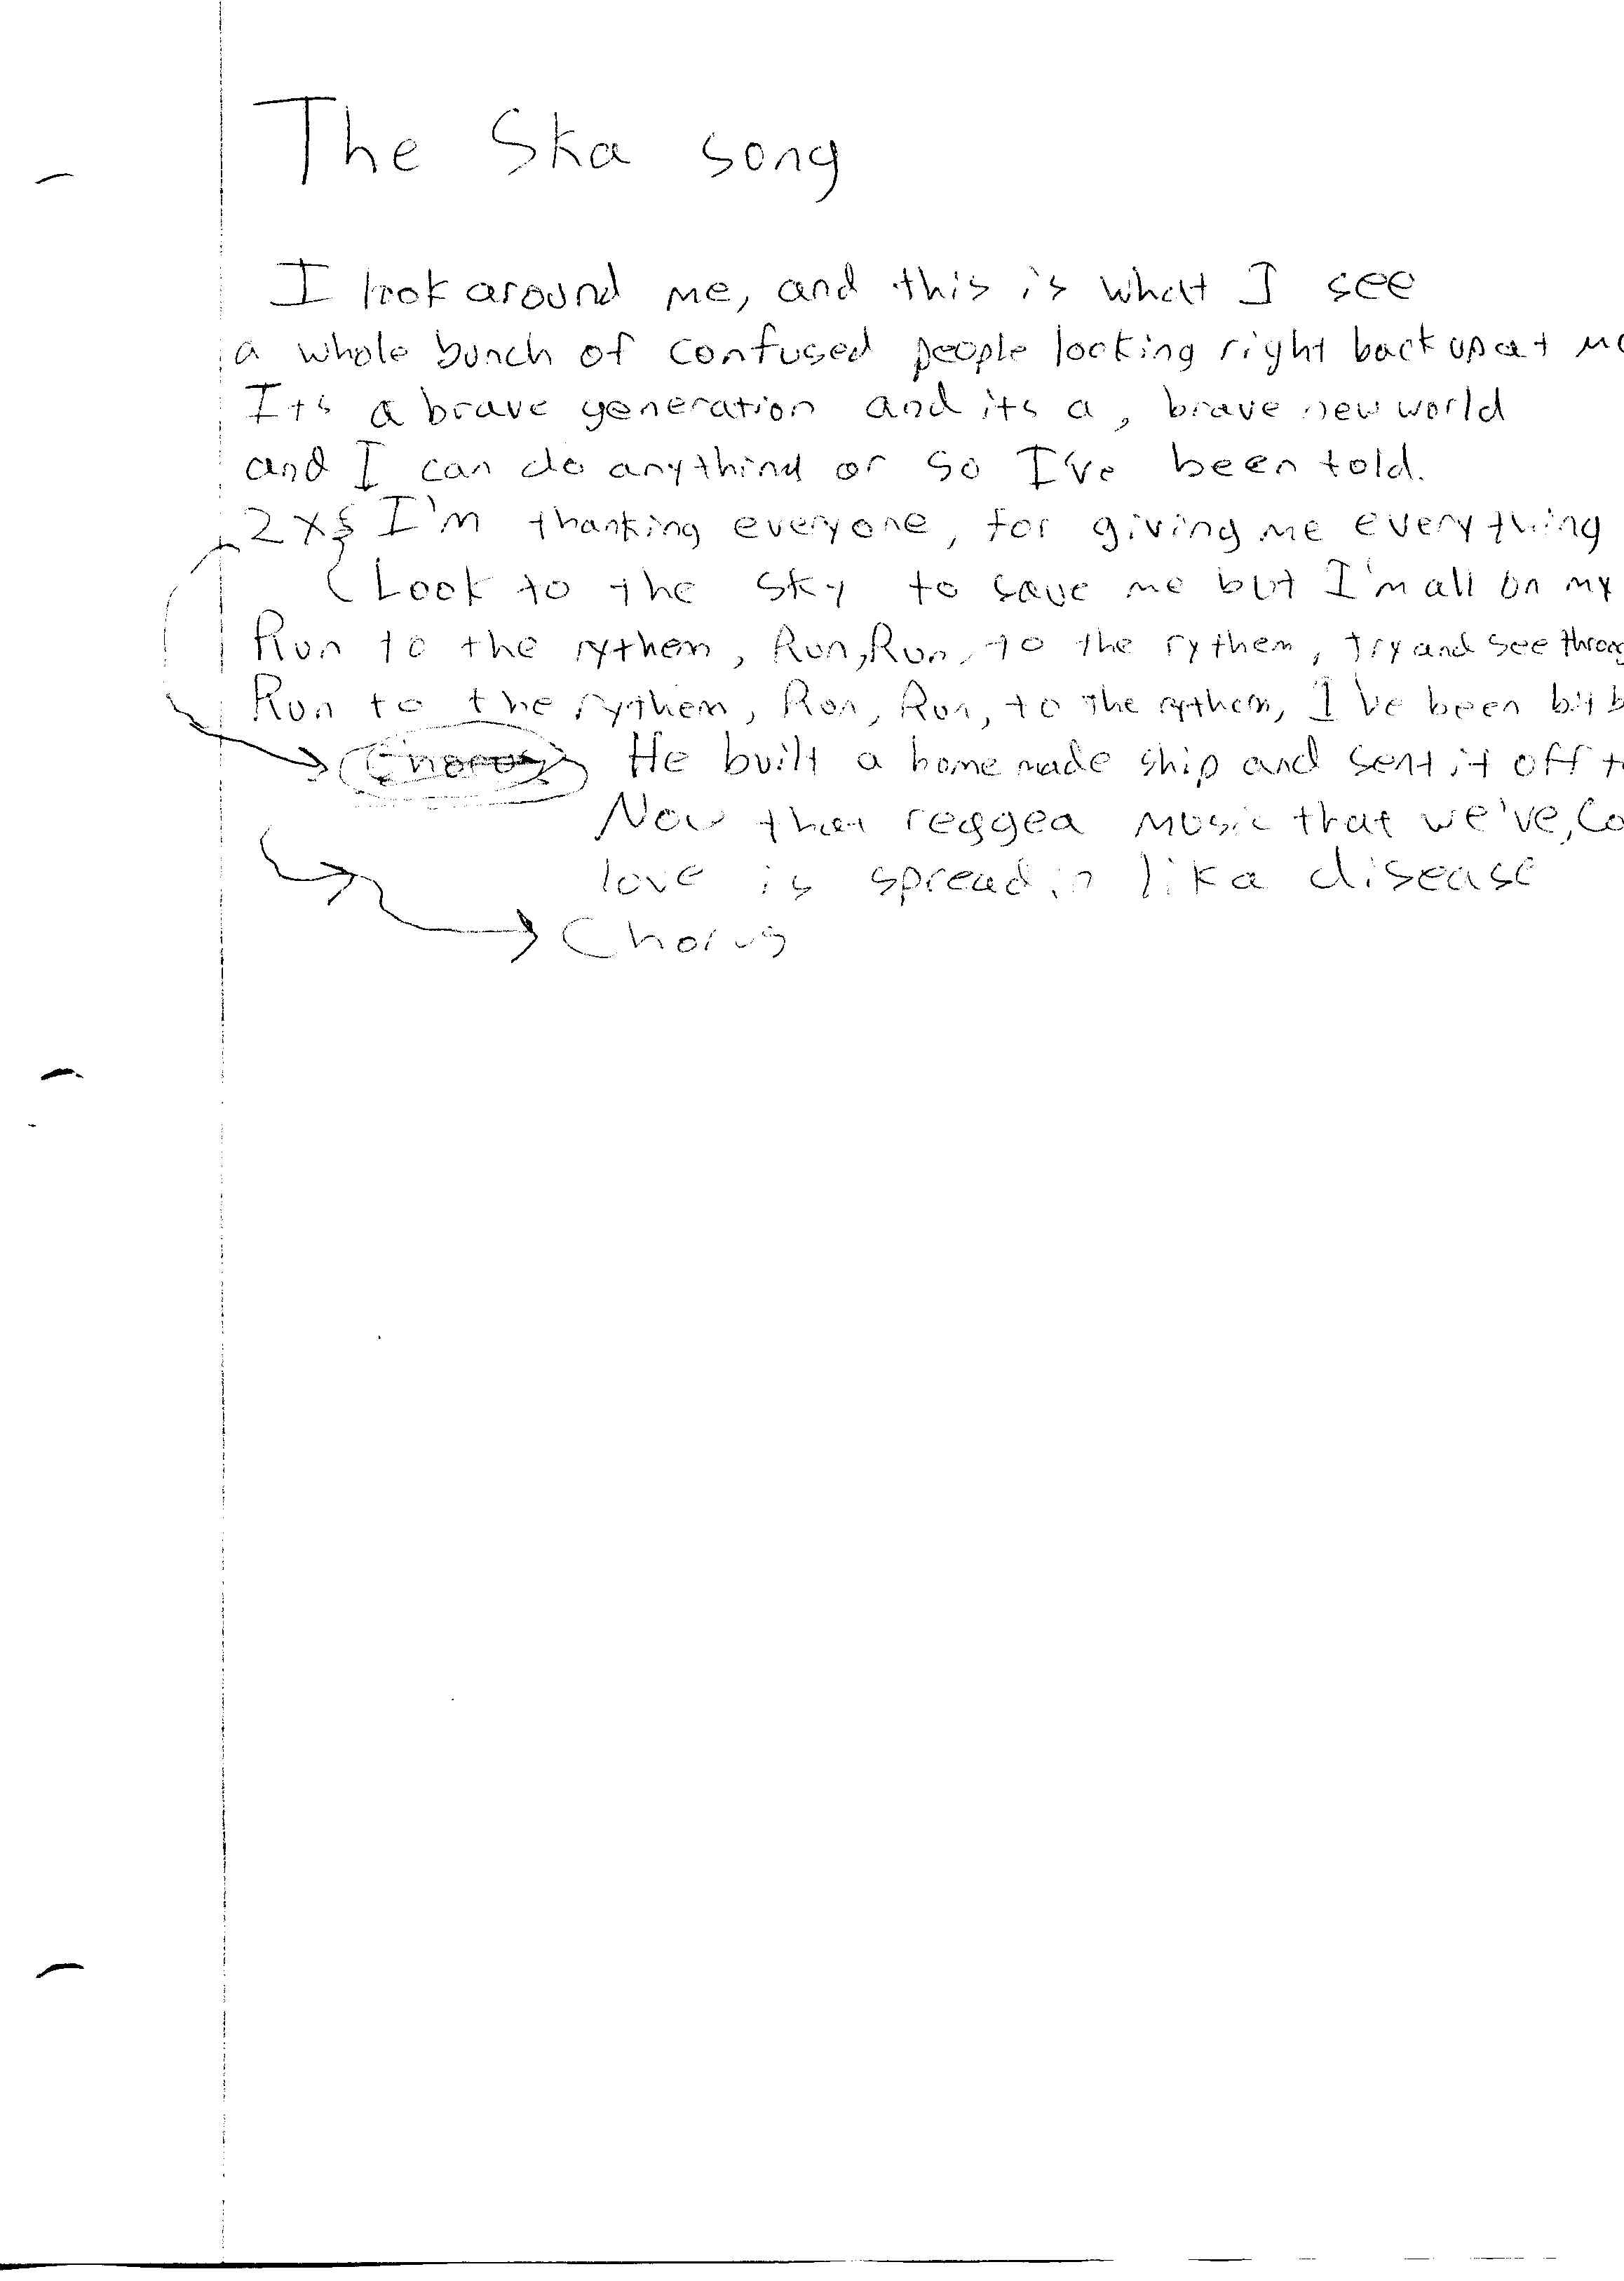 The Ska song
I look around me, and this is what I see
a whole bunch of confused people looking right back up at me
Its a brave generation and its a, brave new world
and I can do anything or so I've been told.
2x { I'm thanking everyone, for giving me everything
Look to the sky to save me but I'm all on my
Run to the rythem, Run, Run, to the rythem, try and see throug
Run to the rythem, Run, Run, to the rythem, I've been bit b
Chorus He built a home made ship and sent it off t
Now that reggea music that we've, Co
love is spreadin lika disease
Chorus